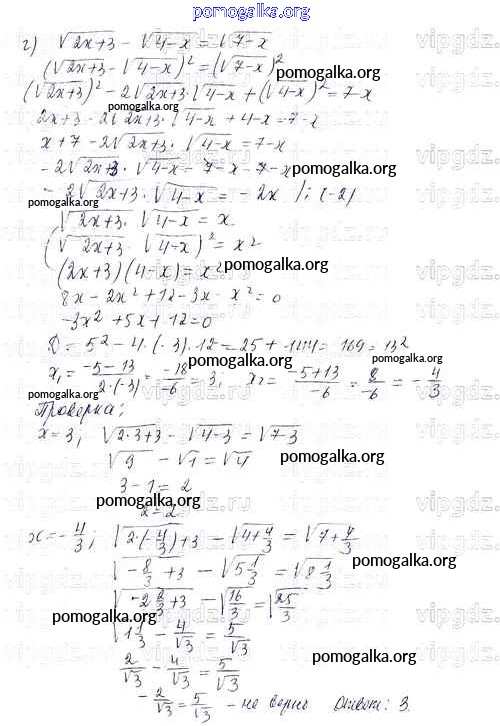 pomogalka.org
г) √(2x+3) - √(4-x) = √(7-x)
(√(2x+3) - √(4-x))² = (√(7-x))²
pomogalka.org
(√(2x+3))² - 2√(2x+3)·√(4-x) + (√(4-x))² = 7-x
pomogalka.org
2x+3 - 2√(2x+3)·√(4-x) + 4-x = 7-x
x+7 - 2√(2x+3)·√(4-x) = 7-x
-2√(2x+3)·√(4-x) = 7-x-7-x
pomogalka.org
-2√(2x+3)·√(4-x) = -2x |:(-2)
pomogalka.org
√(2x+3)·√(4-x) = x
(√(2x+3)·√(4-x))² = x²
(2x+3)(4-x) = x²
pomogalka.org
8x - 2x² + 12 - 3x - x² = 0
-3x² + 5x + 12 = 0
D = 5² - 4·(-3)·12 = 25 + 144 = 169 = 13²
pomogalka.org
x₁ = (-5-13)/(2·(-3)) = -18/-6 = 3; x₂ = (-5+13)/-6 = 8/-6 = -4/3
pomogalka.org
Проверка:
x=3; √(2·3+3) - √(4-3) = √(7-3)
√9 - √1 = √4
pomogalka.org
3-1 = 2
pomogalka.org
2=2
x = -4/3; √(2·(-4/3)+3) - √(4+4/3) = √(7+4/3)
pomogalka.org
√(-8/3+3) - √(5 1/3) = √(8 1/3)
√(-2 2/3+3) - √(16/3) = √(25/3)
pomogalka.org
pomogalka.org
1 1/3 - 4/√3 = 5/√3
2/√3 - 4/√3 = 5/√3
pomogalka.org
-2/√3 = 5/√3 - не верно Ответ: 3.